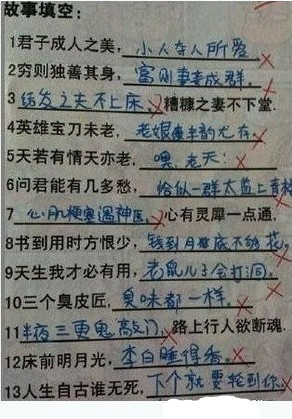 故事填空：
1君子成人之美，小人夺人所爱
2穷则独善其身，富则妻妾成群。
3结发之夫不上床，糟糠之妻不下堂.
4英雄宝刀未老，老娘半韵尤存.
5天若有情天亦老，嘿，老天!
6问君能有几多愁，恰似一群太监上青楼
7心肌梗塞遇神医，心有灵犀一点通.
8书到用时方恨少，钱到月底不够花。
9天生我才必有用，老鼠儿子会打洞。
10三个臭皮匠，臭味都一样。
11半夜三更鬼敲门，路上行人欲断魂.
12床前明月光，李白睡得香。
13人生自古谁无死，下个就要轮到你